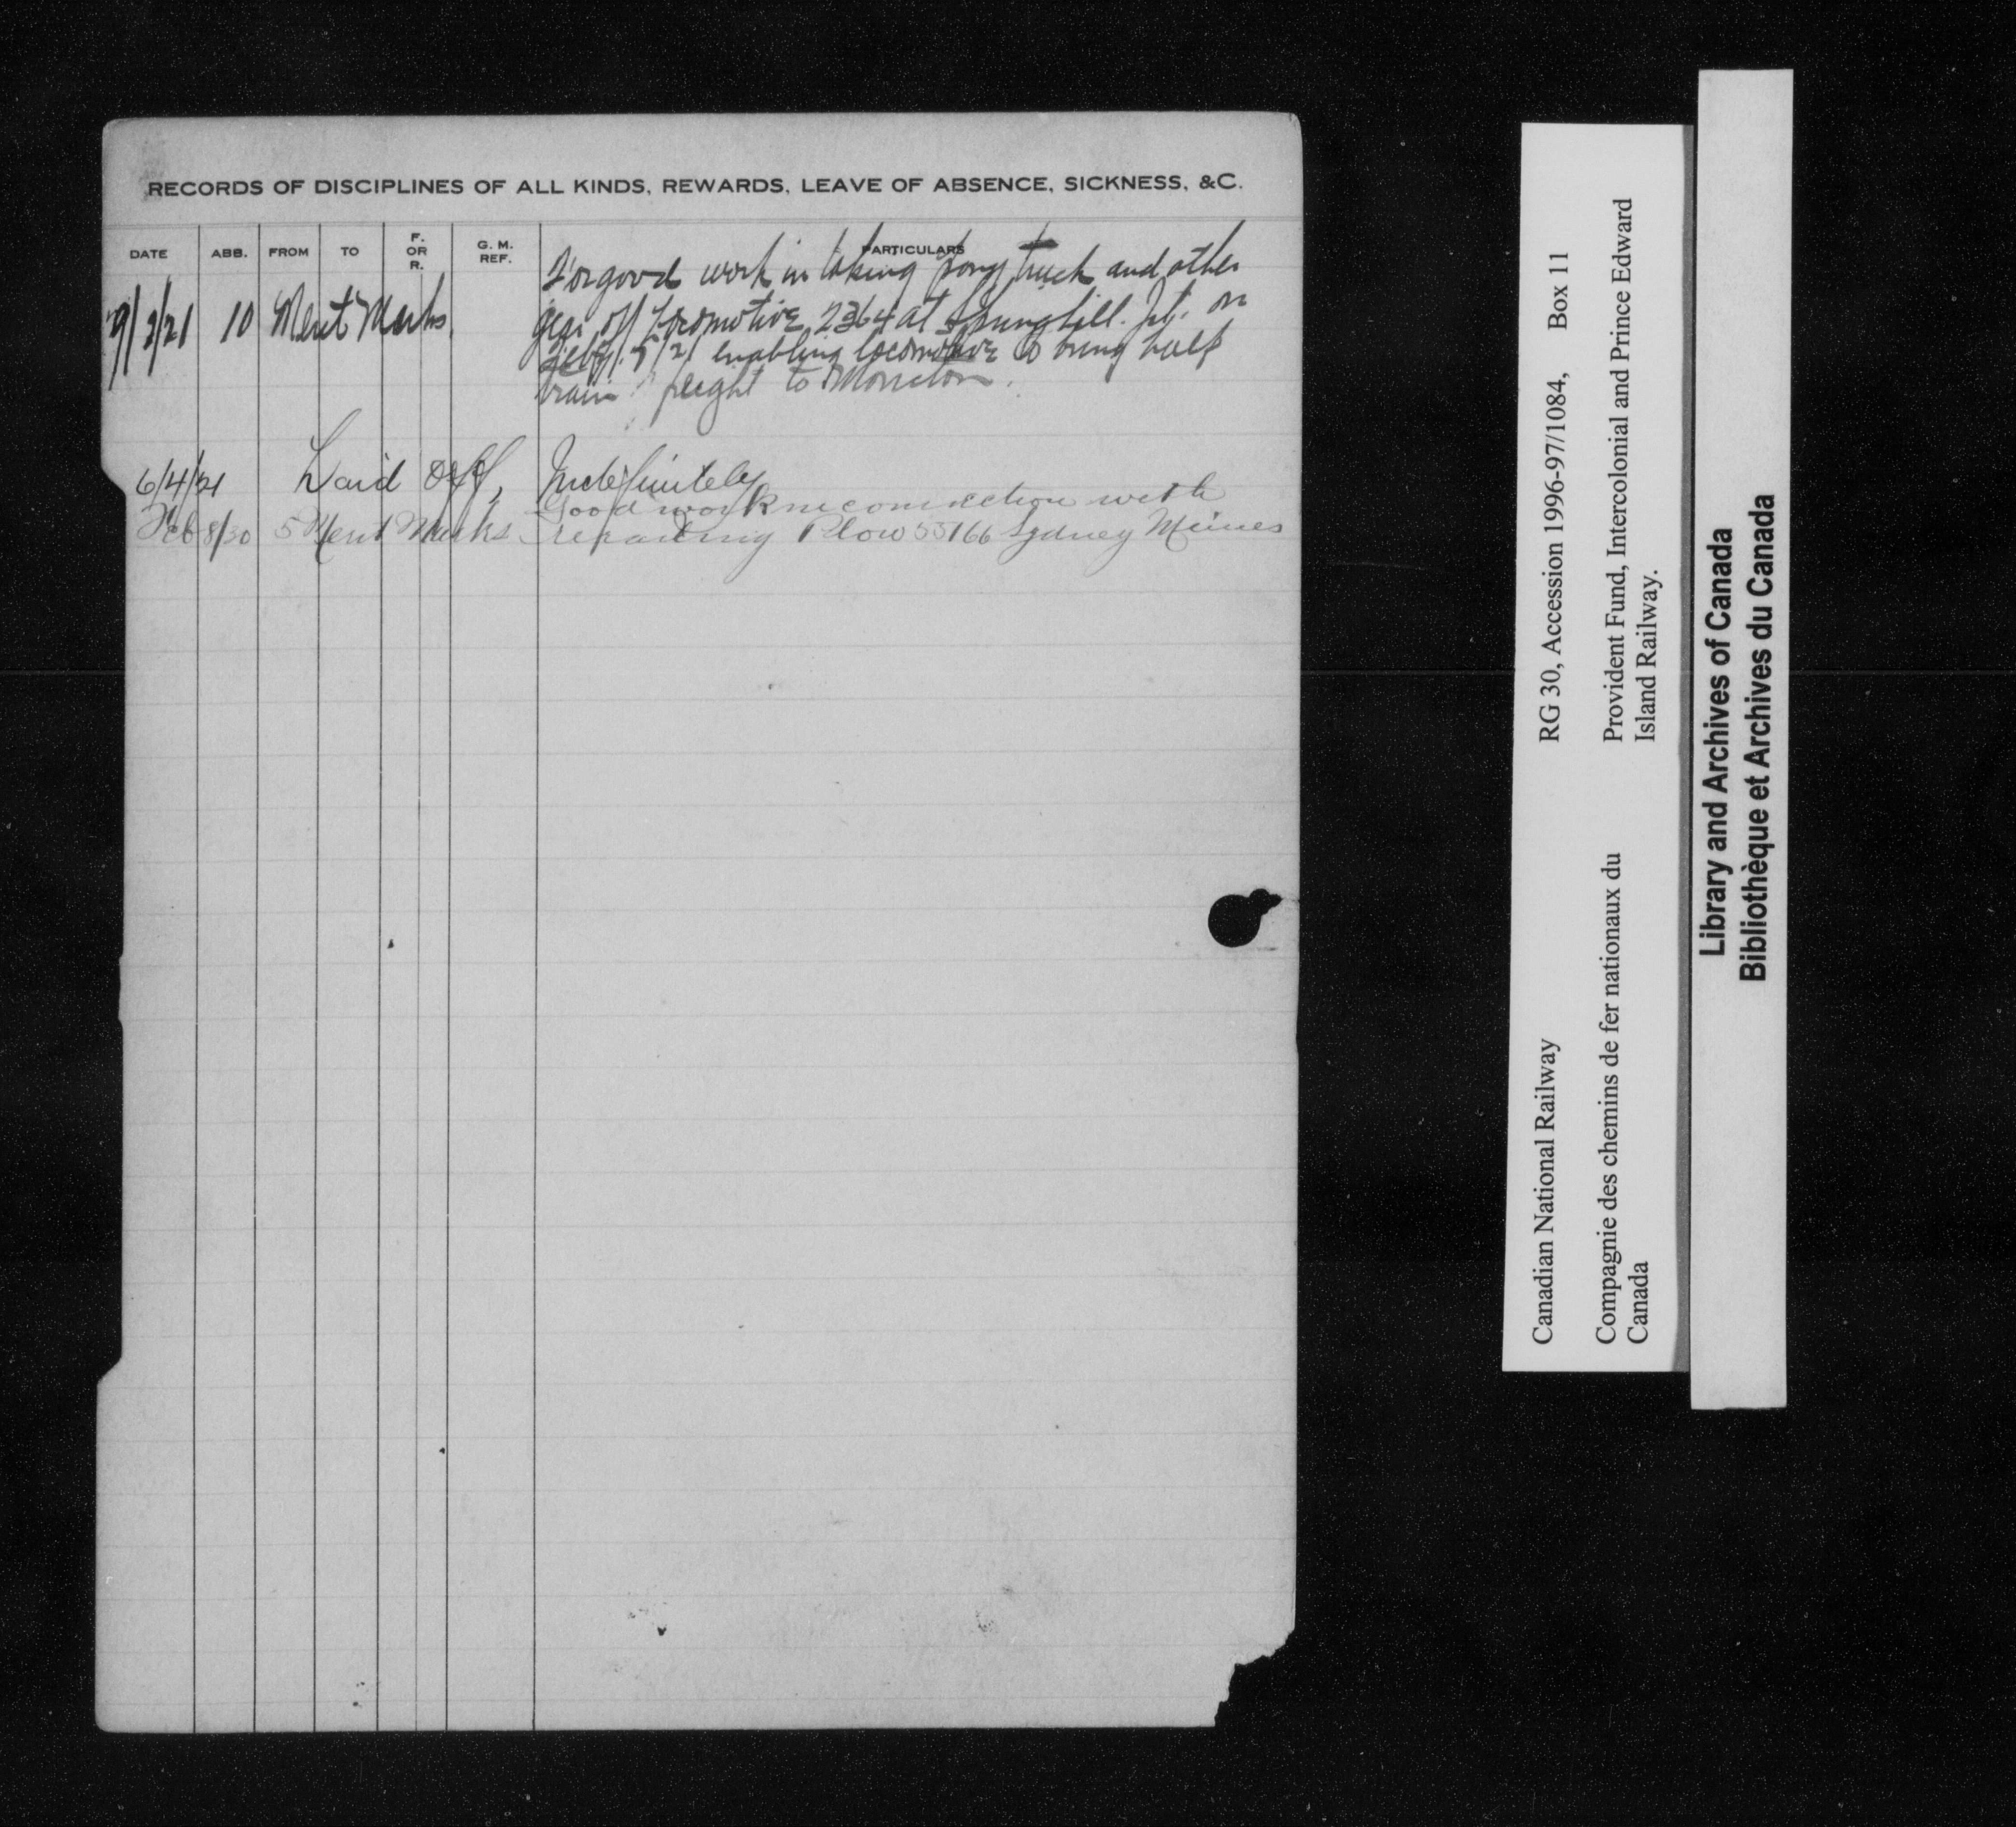 RECORDS OF DISCIPLINES OF ALL KINDS, REWARDS, LEAVE OF ABSENCE, SICKNESS, &C.
DATE ABB. FROM TO F. OR R. G. M. REF. PARTICULARS
For good work in taking pony truck and other
9/2/21 10 Merit Marks. gear off Locomotive 2364 at Springhill. Jct. on
Feby. 5/21 enabling locomotive to bring half
train freight to Moncton.
6/4/21 Laid off, Indefinitely
Good work in connection with
Feb 8/30 5 Merit Marks repairing Plow 55166 Sydney Mines
Canadian National Railway RG 30, Accession 1996-97/1084, Box 11
Compagnie des chemins de fer nationaux du Canada
Provident Fund, Intercolonial and Prince Edward
Island Railway.
Library and Archives of Canada
Bibliothèque et Archives du Canada